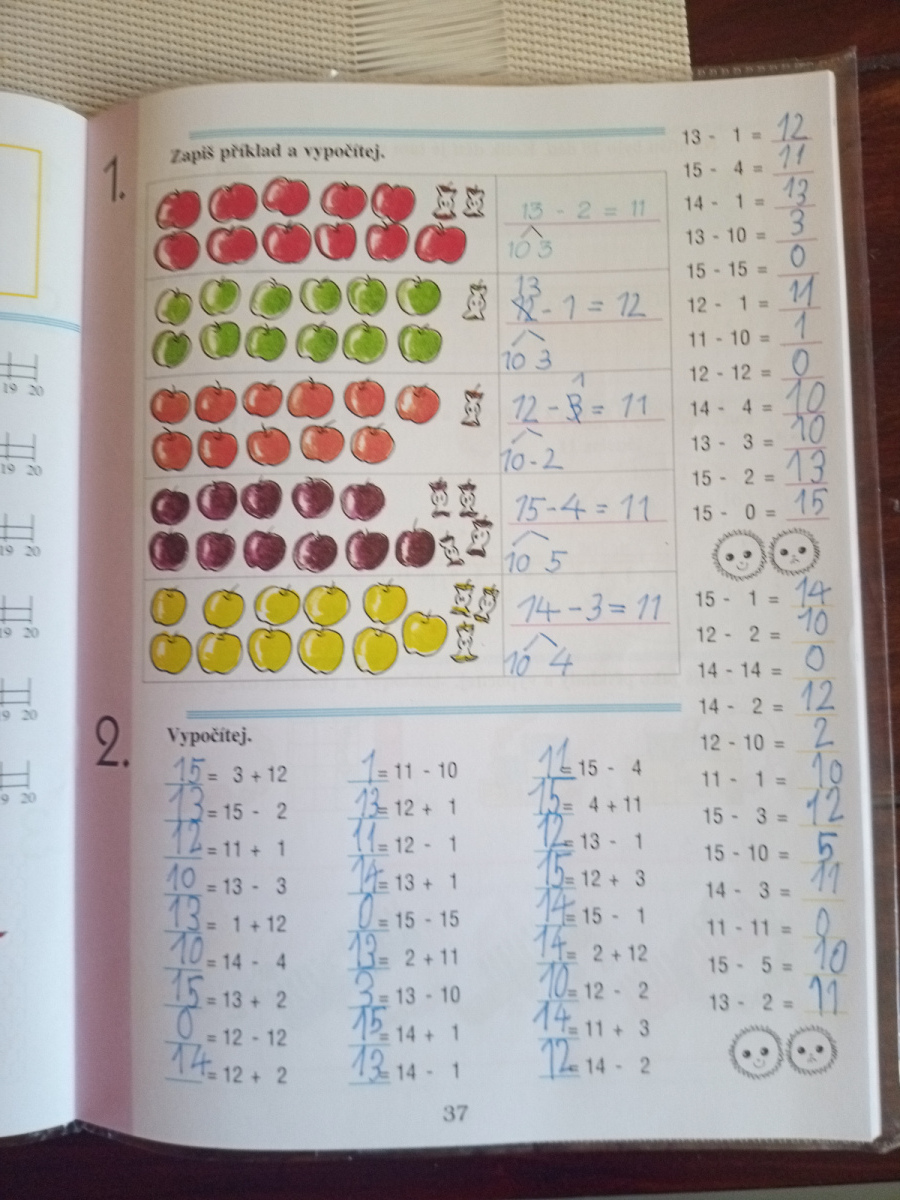 1.
Zapiš příklad a vypočítej.
13 - 2 = 11
10 3
13
12 - 1 = 12
10 3
1
12 - 3 = 11
10 - 2
15 - 4 = 11
10 5
14 - 3 = 11
10 4
13 - 1 = 12
15 - 4 = 11
14 - 1 = 13
13 - 10 = 3
15 - 15 = 0
12 - 1 = 11
11 - 10 = 1
12 - 12 = 0
14 - 4 = 10
13 - 3 = 10
15 - 2 = 13
15 - 0 = 15
15 - 1 = 14
12 - 2 = 10
14 - 14 = 0
14 - 2 = 12
12 - 10 = 2
11 - 1 = 10
15 - 3 = 12
15 - 10 = 5
14 - 3 = 11
11 - 11 = 0
15 - 5 = 10
13 - 2 = 11
2.
Vypočítej.
15 = 3 + 12
13 = 15 - 2
12 = 11 + 1
10 = 13 - 3
13 = 1 + 12
10 = 14 - 4
15 = 13 + 2
0 = 12 - 12
14 = 12 + 2
1 = 11 - 10
13 = 12 + 1
11 = 12 - 1
14 = 13 + 1
0 = 15 - 15
13 = 2 + 11
3 = 13 - 10
15 = 14 + 1
13 = 14 - 1
11 = 15 - 4
15 = 4 + 11
12 = 13 - 1
15 = 12 + 3
14 = 15 - 1
14 = 2 + 12
10 = 12 - 2
14 = 11 + 3
12 = 14 - 2
37
19 20
19 20
19 20
19 20
19 20
9 20